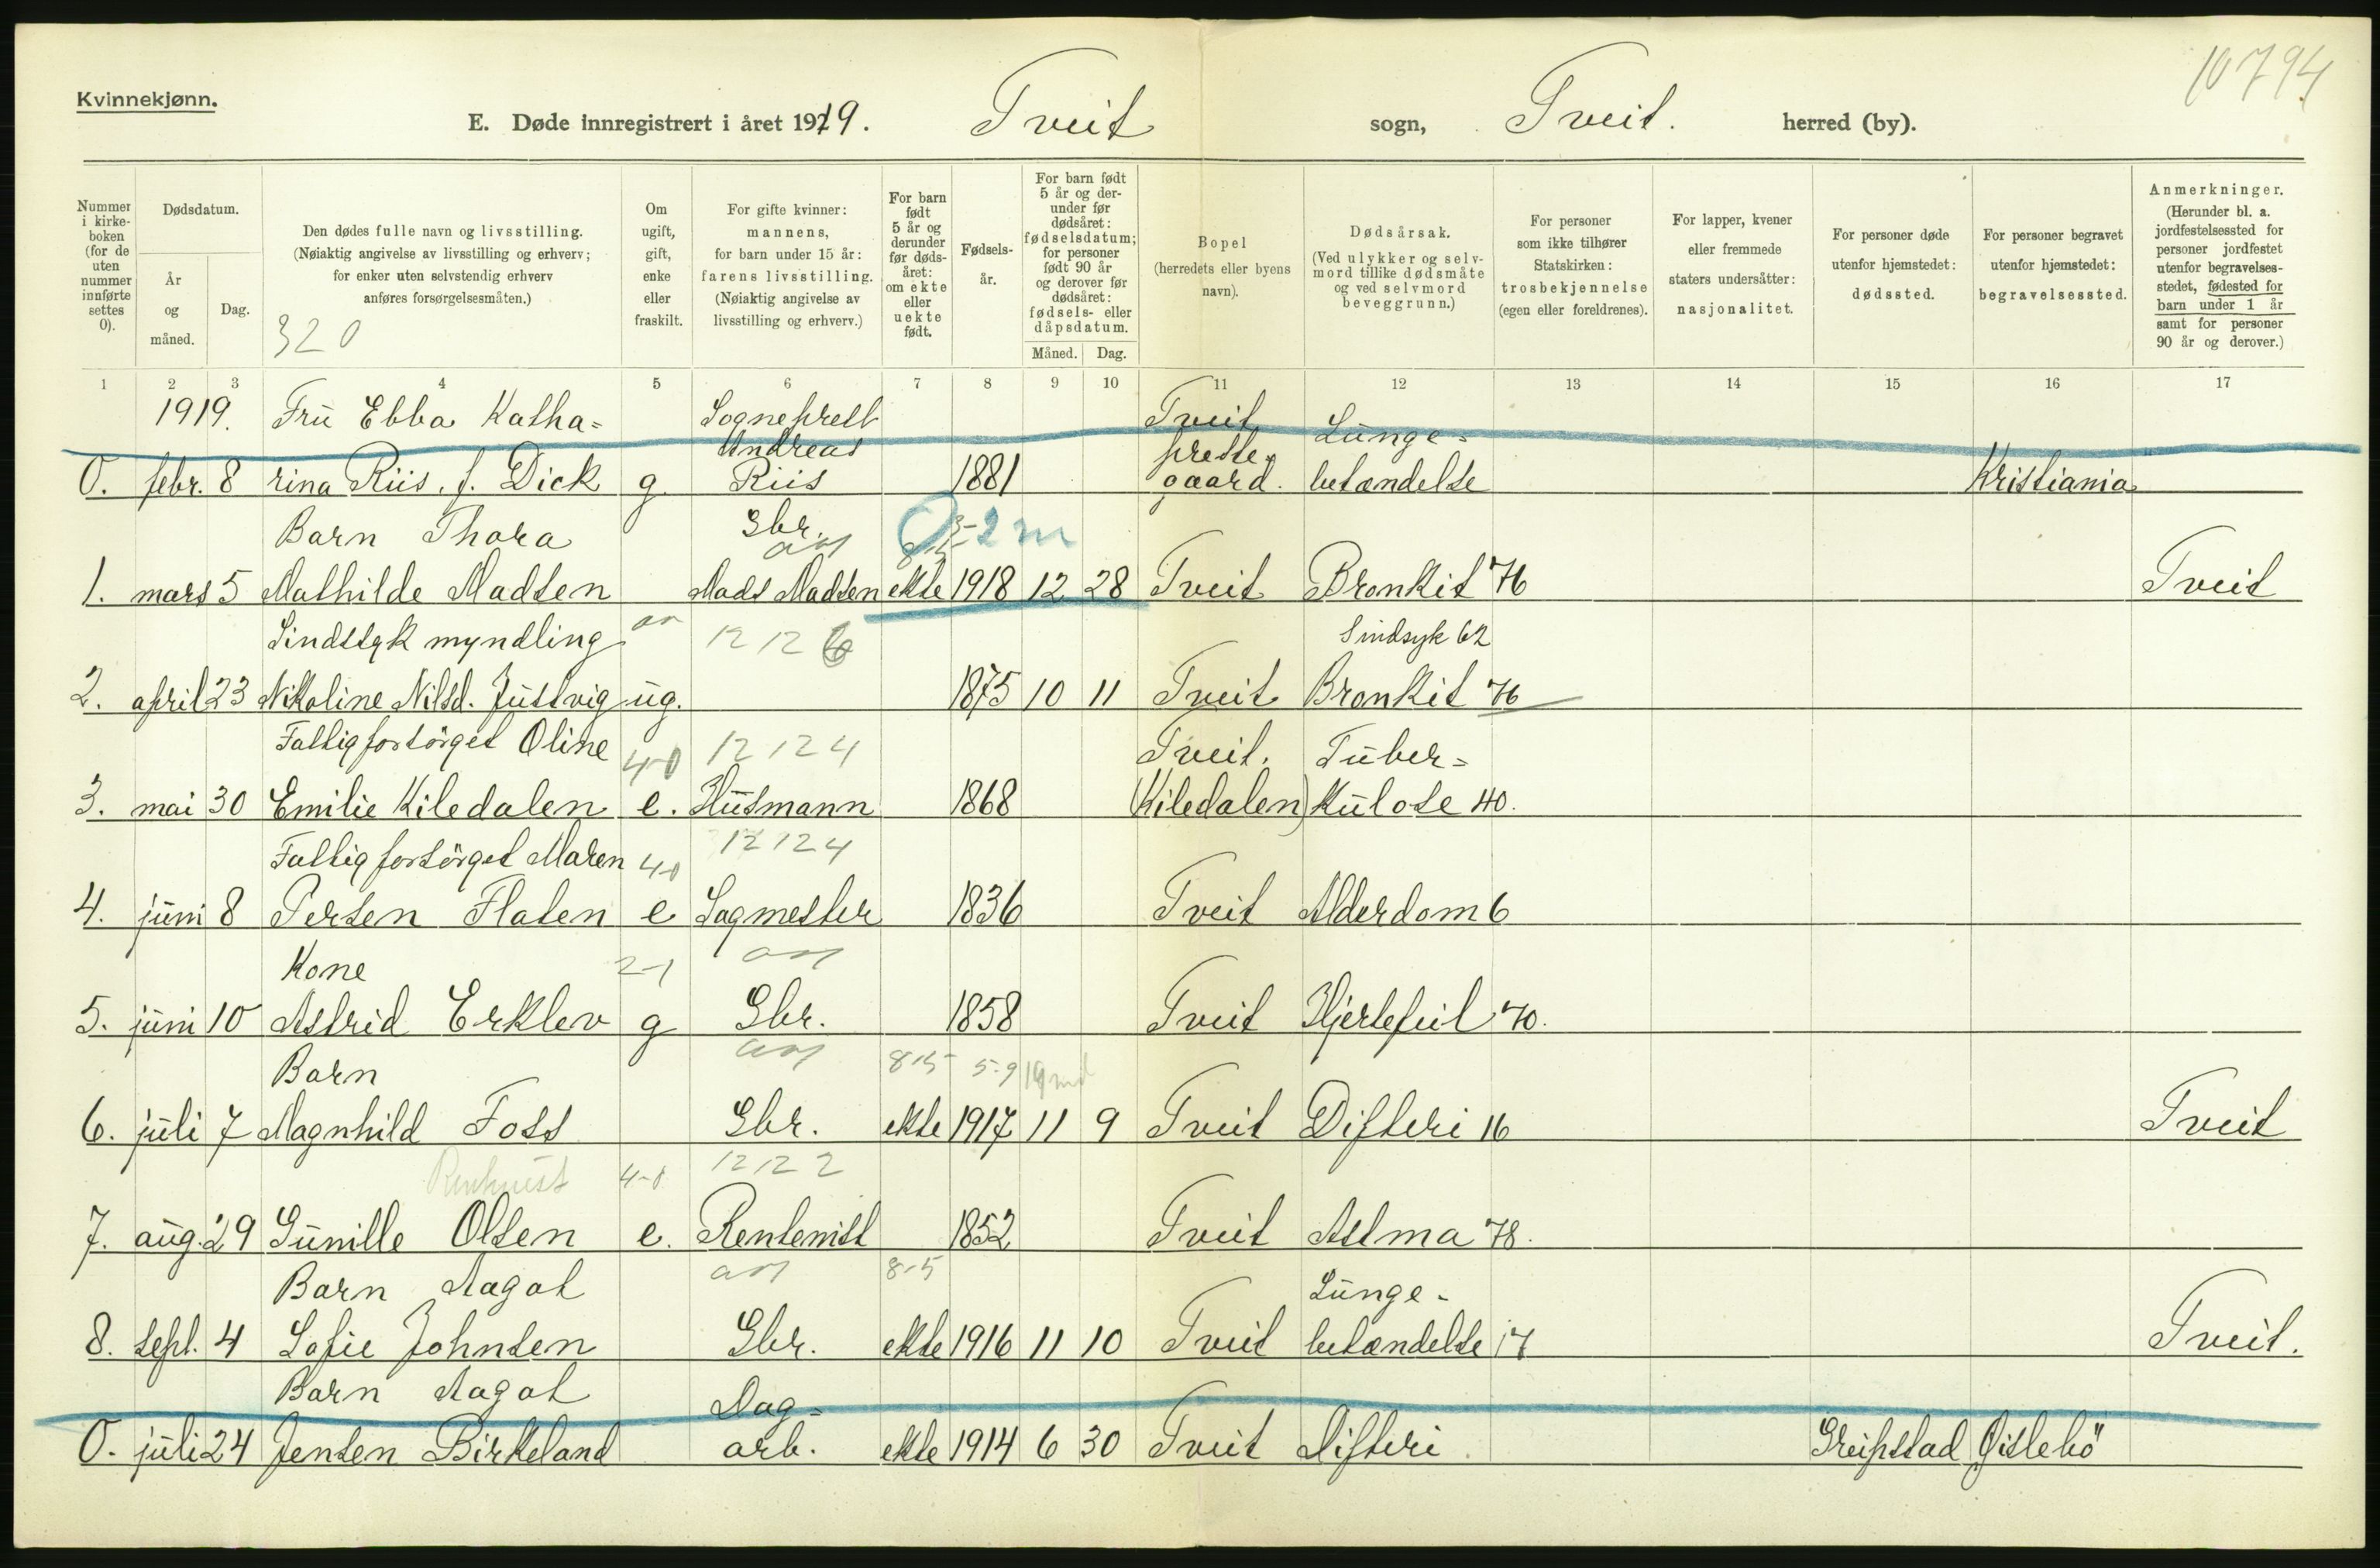 10794
Kvinnekjønn.
E. Døde innregistrert i året 1919. Tveit sogn, Tveit. herred (by).
Nummer i kirkeboken (for de uten nummer innførte settes 0).
Dødsdatum.
År og måned.
Dag.
Den dødes fulle navn og livsstilling.
(Nøiaktig angivelse av livsstilling og erhverv;
for enker uten selvstendig erhverv
anføres forsørgelsesmåten.)
320
Om ugift, gift, enke eller fraskilt.
For gifte kvinner:
mannens,
for barn under 15 år:
farens livsstilling.
(Nøiaktig angivelse av
livsstilling og erhverv.)
For barn født 5 år og derunder før dødsåret: om ekte eller uekte født.
Fødselsår.
For barn født 5 år og derunder før dødsåret: fødselsdatum; for personer født 90 år og derover før dødsåret: fødsels- eller dåpsdatum.
Måned. Dag.
Bopel
(herredets eller byens navn).
Dødsårsak.
(Ved ulykker og selvmord tillike dødsmåte og ved selvmord beveggrunn.)
For personer som ikke tilhører Statskirken: trosbekjennelse (egen eller foreldrenes).
For lapper, kvener eller fremmede staters undersåtter: nasjonalitet.
For personer døde utenfor hjemstedet: dødssted.
For personer begravet utenfor hjemstedet: begravelsessted.
Anmerkninger.
(Herunder bl. a. jordfestelsessted for personer jordfestet utenfor begravelsesstedet, fødested for barn under 1 år samt for personer 90 år og derover.)
1 2 3 4 5 6 7 8 9 10 11 12 13 14 15 16 17
1919. Frü Ebba Katha= Sogneprest Tveit Lünge=
Andreas preste-
0. febr. 8 rina Riis, f. Dick g. Riis 1881 gaard. betændelse Kristiania
Barn Thora Gbr. 2 m
1. mars 5 Mathilde Madsen Mads Madsen ekte 1918 12 28 Tveit Bronkit 76 Tveit
Sindssyk myndling 12 12 6 Sindsyk 62
2. april 23 Nikoline Nilsd. Jüstvig üg. 1875 10 11 Tveit Bronkit 76
Fattigforsörget Oline 4-0 12 12 4 Tveit. Tüber=
3. mai 30 Emilie Kiledalen e. Hüsmann 1868 (Kiledalen) külose 40.
Fattigforsörget Maren 4-0 12 12 4
4. jüni 8 Persen Flaten e Sagmester 1836 Tveit Alderdom 6
Kone 2-1
5. jüni 10 Astrid Erklev g Gbr. 1858 Tveit Hjertefeil 70.
Barn 8-5 5-9 19 md
6. jüli 7 Magnhild Foss Gbr. ekte 1917 11 9 Tveit Difteri 16 Tveit
4-0 12 12 2
7. aüg. 29 Günille Olsen e. Rentenist 1852 Tveit Astma 78.
Barn Aagot 8-5 Lünge-
8. sept. 4 Sofie Johnsen Gbr. ekte 1916 11 10 Tveit betændelse 17 Tveit.
Barn Aagot Dag=
0. jüli 24 Jensen Birkeland arb. ekte 1914 6 30 Tveit Difteri Greipstad Gislebö